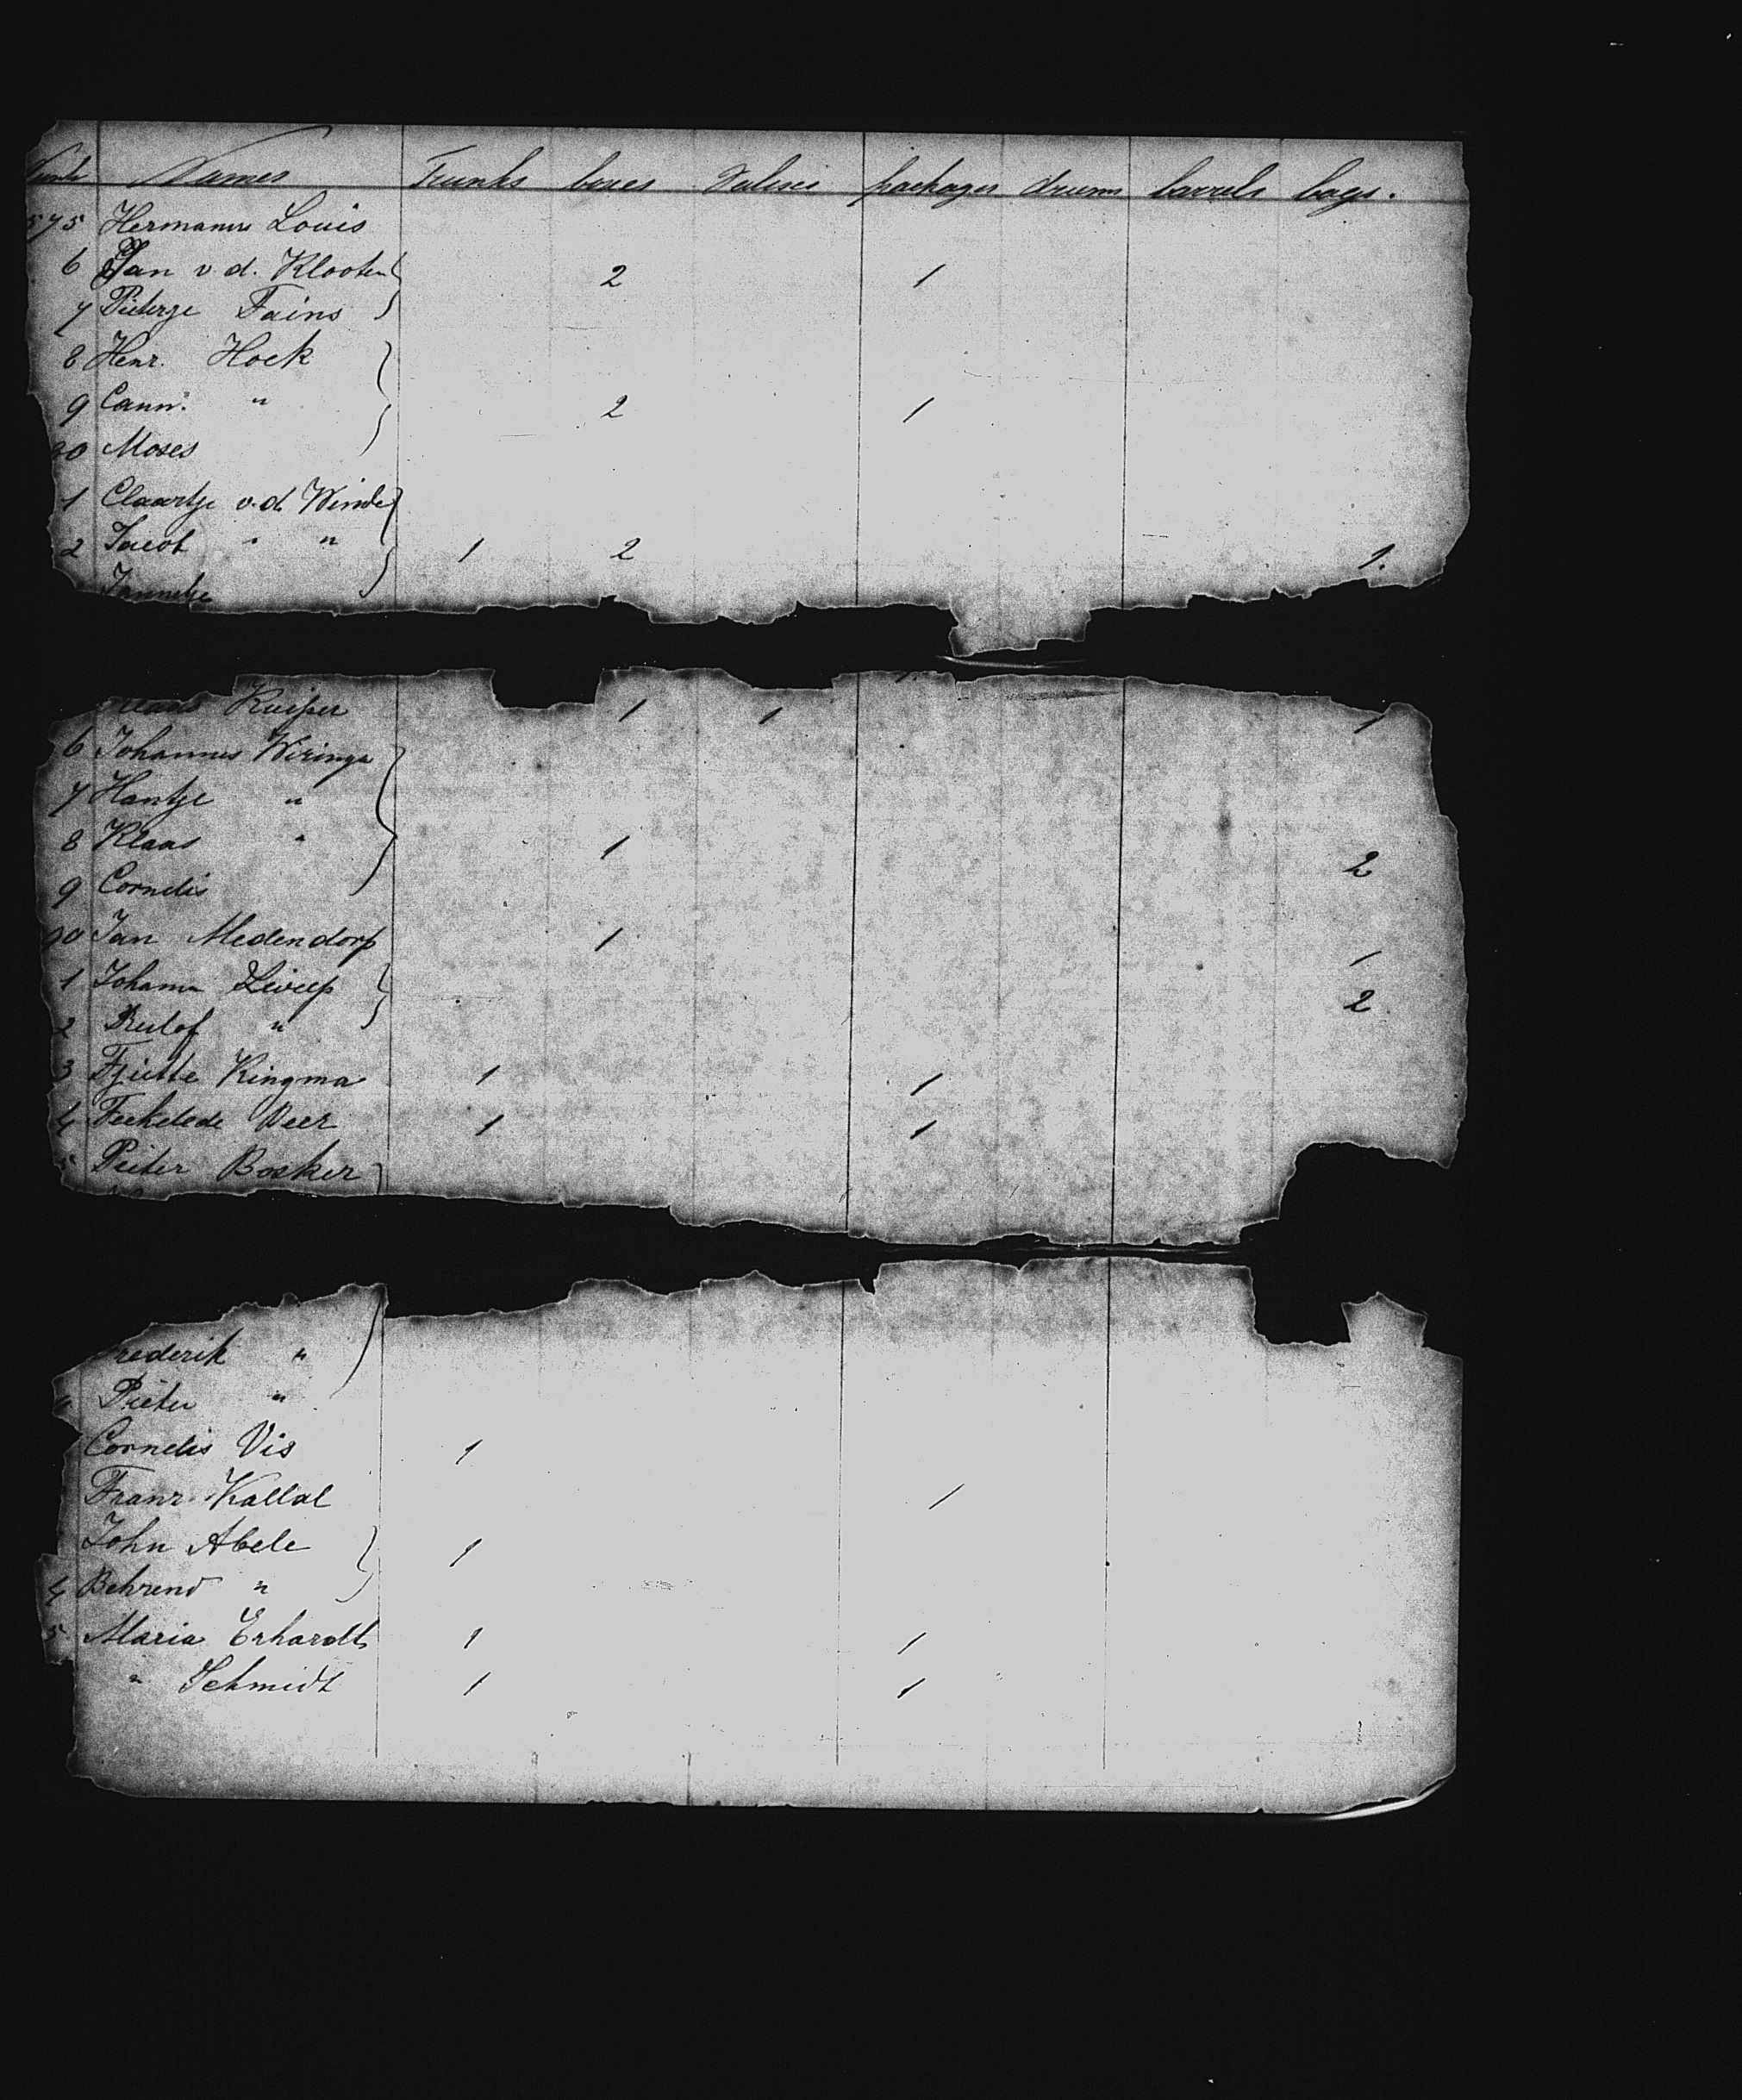 Names Trunks boxes Valises packages drums barrels bags.
575 Hermanus Louis
6 Jan v d.Klooten 2 1
7 Pieterje Fains
8 Henr. Hoek
9 Cann. " 2 1
80 Moses
1 Claartje v.d. Winde
2 Jacob " " 1 2 1.
Jannetje
Kuiper 1 1 1
6 Johannes Wiringa
7 Hantje "
8 Klaas " 1 2
9 Cornelis
90 Jan Medendorp 1 1
1 Johann 2
2 "
3 Kingma 1 1
4 Veer 1 1
5 Pieter Bosker
rederik "
Pieter "
Cornelis Vis 1
Franz Kallal 1
John Abele 1
4 Behrend "
5 Maria Erhardt 1 1
" Schmidt 1 1